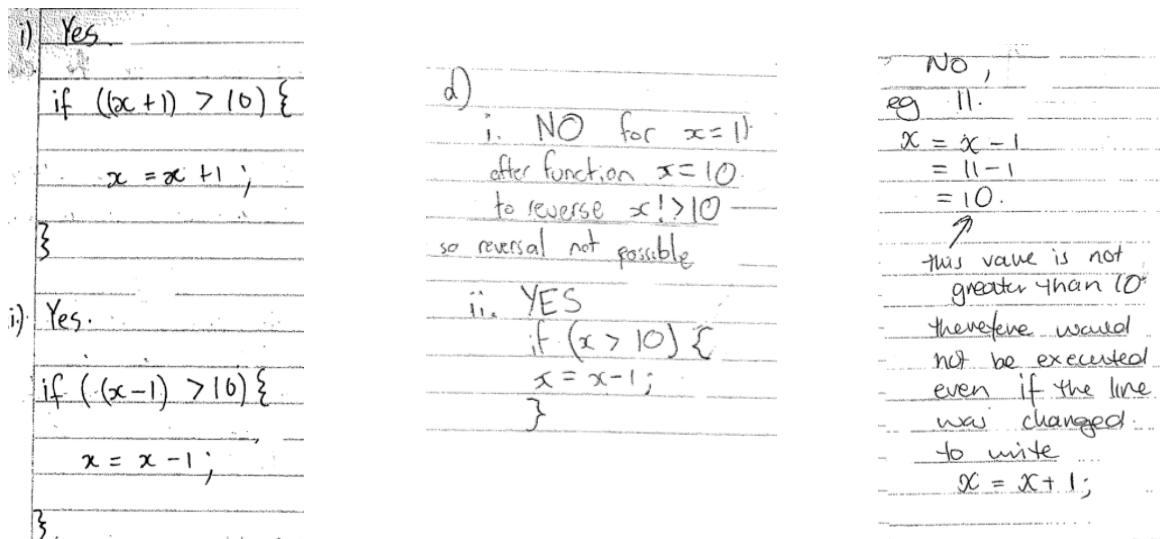 i) Yes.
if ((x+1) > 10) {
x = x +1 ;
}
ii) Yes.
if ((x-1) >10) {
x = x -1 ;
}
d)
i. NO for x=11
after function x=10.
to reverse x!>10
so reversal not possible
ii. YES
if (x > 10) {
x = x-1;
}
NO,
eg 11.
x = x - 1
= 11 - 1
= 10.
this value is not
greater than 10
therefore would
not be executed
even if the line
was changed
to write
x = x + 1;